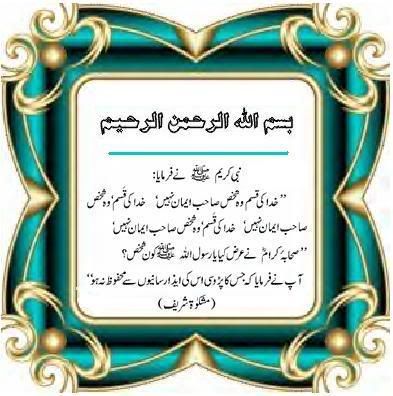 بسم اللہ الرحمن الرحیم
نبی کریم ﷺ نے فرمایا:
”خدا کی قسم وہ شخص صاحب ایمان نہیں‘ خدا کی قسم‘ وہ شخص
صاحب ایمان نہیں‘ خدا کی قسم‘ وہ شخص صاحب ایمان نہیں‘
”صحابہ کرامؓ نے عرض کیا یا رسول اللہ ﷺ کون شخص؟
آپ نے فرمایا کہ جس کا پڑوسی اس کی ایذا رسانیوں سے محفوظ نہ ہو“
(مشکوٰۃ شریف)